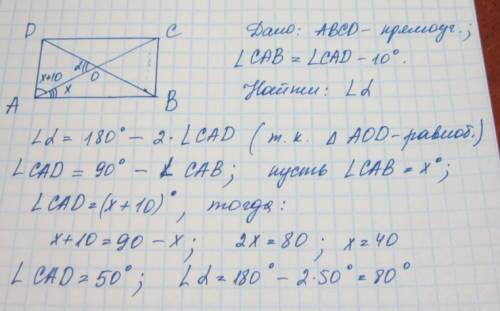 D C
Дано: ABCD - прямоуг.;
x+10 α O
∠CAB = ∠CAD - 10°.
x
A B
Найти: ∠α
∠α = 180° - 2·∠CAD (т.к. △ AOD - равноб.)
∠CAD = 90° - ∠CAB; пусть ∠CAB = x°;
∠CAD = (x+10)°, тогда:
x+10 = 90 - x; 2x = 80; x = 40
∠CAD = 50°; ∠α = 180° - 2·50° = 80°